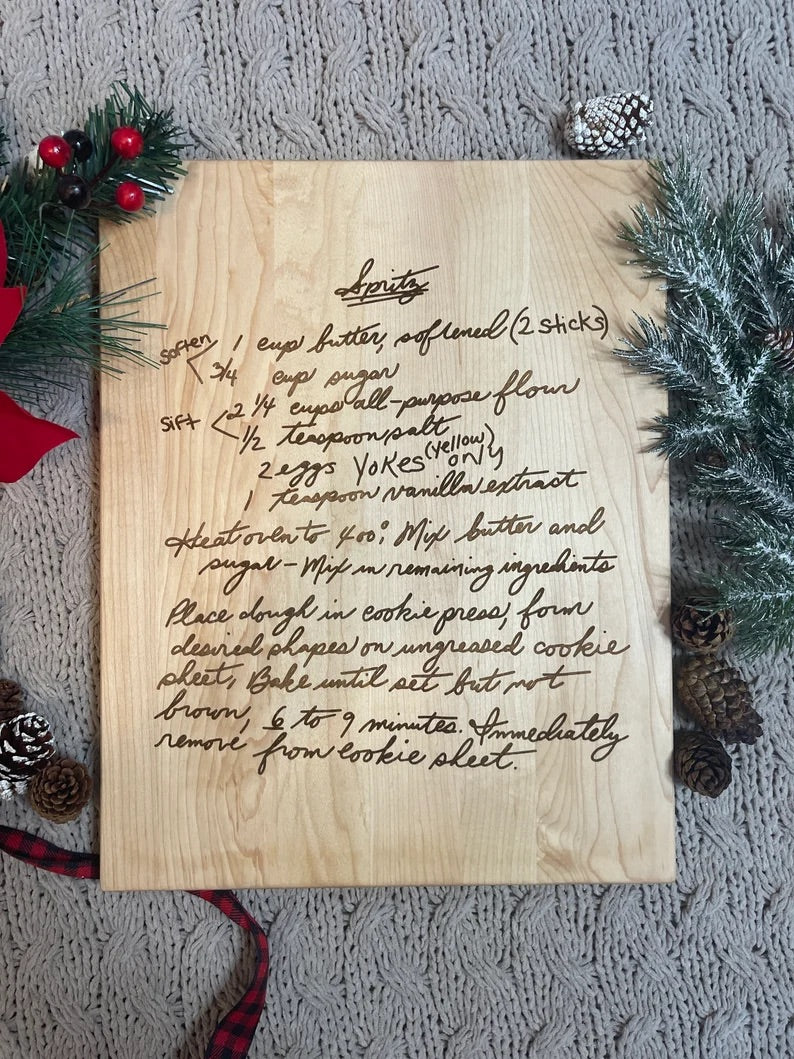 Spritz
soften 1 cup butter, softened (2 sticks)
3/4 cup sugar
sift 2 1/4 cups all-purpose flour
1/2 teaspoon salt
2 eggs Yokes (yellow) only
1 teaspoon vanilla extract
Heat oven to 400°. Mix butter and
sugar - Mix in remaining ingredients
Place dough in cookie press, form
desired shapes on ungreased cookie
sheet, Bake until set but not
brown, 6 to 9 minutes. Immediately
remove from cookie sheet.